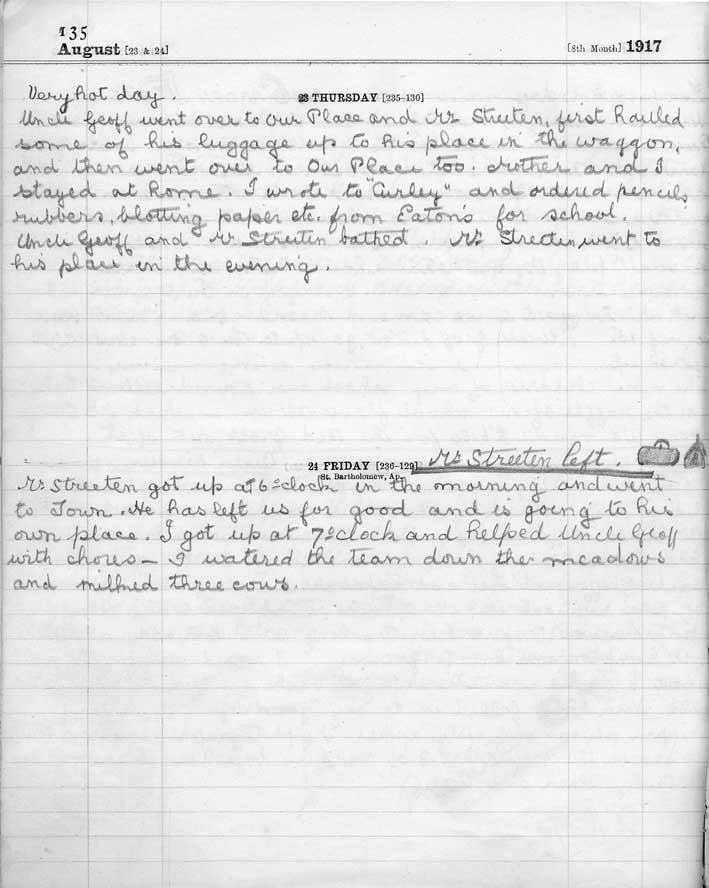 135
August [23 & 24]
[8th Month] 1917
Very hot day.
23 THURSDAY [235-130]
Uncle Geoff went over to Our Place and Mr Streeten, first hauled
some of his luggage up to his place in the waggon,
and then went over to Our Place too. Mother and I
stayed at home. I wrote to "Curley" and ordered pencils,
rubbers, blotting paper etc. from Eaton's for school.
Uncle Geoff and Mr Streeten bathed. Mr Streeten went to
his place in the evening.
24 FRIDAY [236-129]
Mr Streeten left.
[St. Bartholomew, Ap.
Mr Streeten got up at 6 o'clock in the morning and went
to Town. He has left us for good and is going to his
own place. I got up at 7 o'clock and helped Uncle Geoff
with chores - I watered the team down the meadows
and milked three cows.